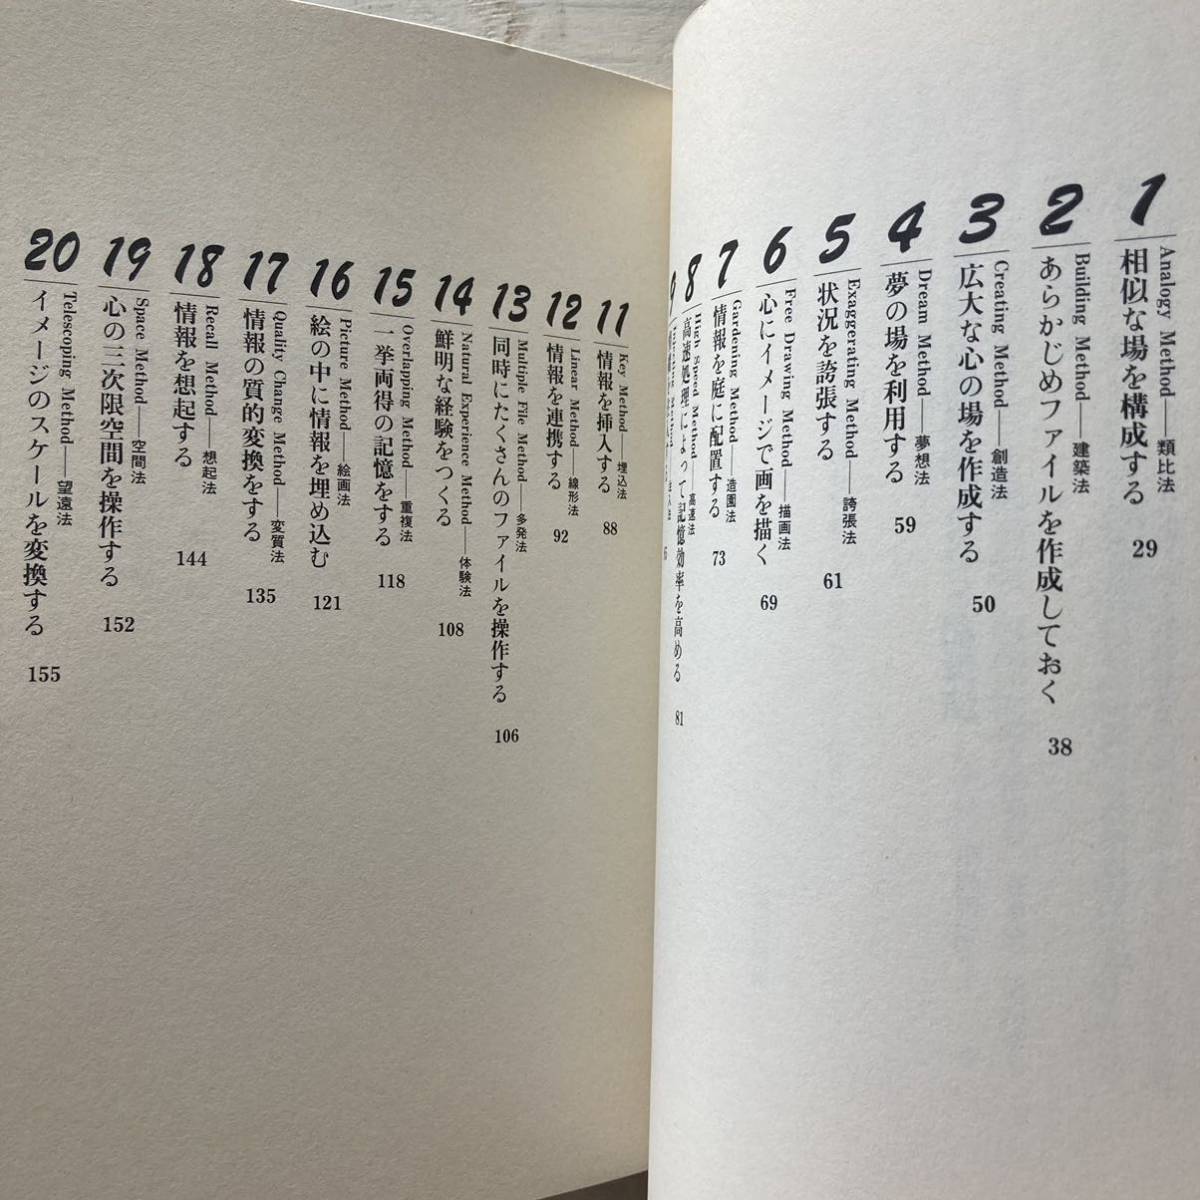 1
Analogy Method——類比法
相似な場を構成する
29
2
Building Method——建築法
あらかじめファイルを作成しておく
38
3
Creating Method——創造法
広大な心の場を作成する
50
4
Dream Method——夢想法
夢の場を利用する
59
5
Exaggerating Method——誇張法
状況を誇張する
61
6
Free Drawing Method——描画法
心にイメージで画を描く
69
7
Gardening Method——造園法
情報を庭に配置する
73
8
High Speed Method——高速法
高速処理によって記憶効率を高める
81
9
11
Key Method——埋込法
情報を挿入する
88
12
Linear Method——線形法
情報を連携する
92
13
Multiple File Method——多発法
同時にたくさんのファイルを操作する
106
14
Natural Experience Method——体験法
鮮明な経験をつくる
108
15
Overlapping Method——重複法
一挙両得の記憶をする
118
16
Picture Method——絵画法
絵の中に情報を埋め込む
121
17
Quality Change Method——変質法
情報の質的変換をする
135
18
Recall Method——想起法
情報を想起する
144
19
Space Method——空間法
心の三次限空間を操作する
152
20
Telescoping Method——望遠法
イメージのスケールを変換する
155